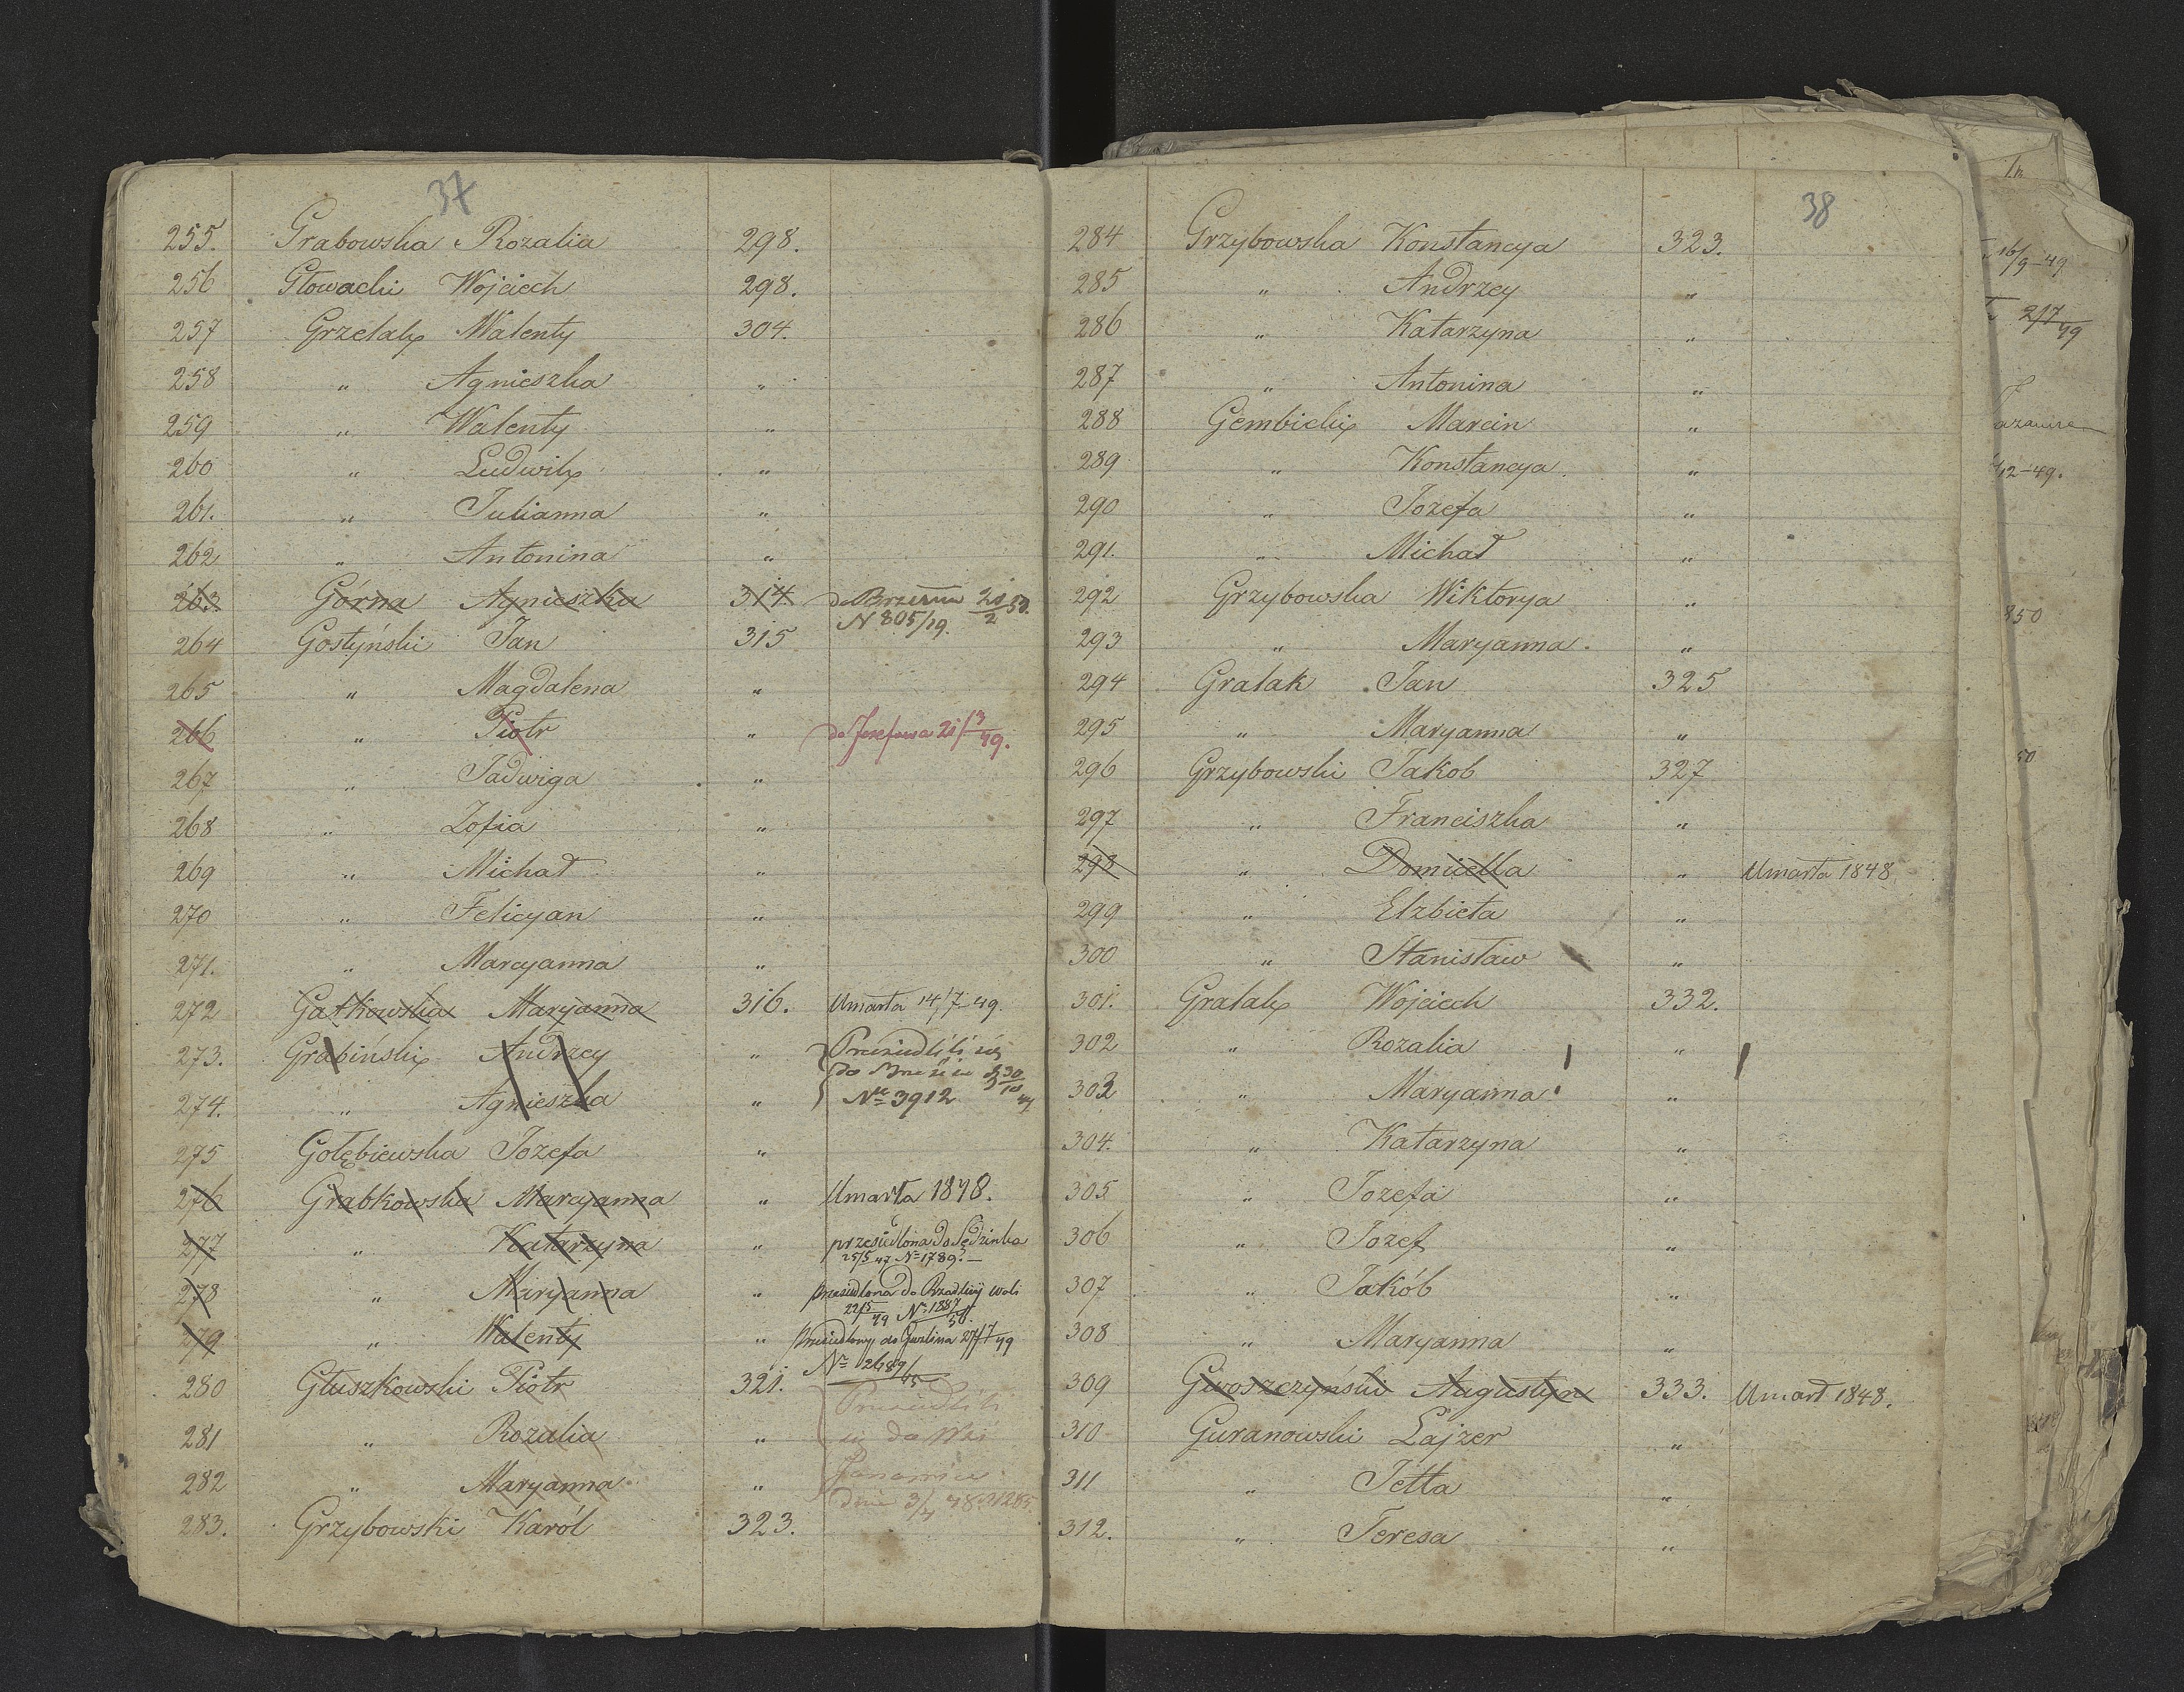 37
255. Grabowska Rozalia 298.
256 Głowacki Wojciech 298.
257 Grzelak Walenty 304.
258 " Agnieszka "
259 " Walenty "
260 " Ludwik "
261. " Julianna "
262 " Antonina "
263. Górna Agnieszka 314 do 20/2 50.
N 805/19.
264 Gostyński Jan 315
265 " Magdalena "
266 " Piotr " do Josefowa 21/3 49.
267 " Jadwiga "
268 " Zofia "
269 " Michał "
270 " Felicyan "
271. " Maryanna "
272 Gałkowska Maryanna 316. Umarła 14/7-49.
273. Grabiński Andrzey " Przesiedlili się
do 30/10
274. " Agnieszka " Nr 3912
275 Gołębiewska Jozefa "
276 Grabkowska Maryanna " Umarła 1848.
277 " Katarzyna " przesiedlona do Sędzinka
25/5 47 N 1789. —
278 " Maryanna " przesiedlona do Woli
22/5 49 N. 1887/50.
279 " Walenty " Przesiedlony do 27/7 49
Nr 2689/45
280 Głuszkowski Piotr 321. Przesiedlili
281 " Rozalia " się do Wsi
282 " Maryanna "
dnia 3/7 48
283. Grzybowski Karól 323.
38
284 Grzybowska Konstancya 323.
285 " Andrzey "
286 " Katarzyna "
287 " Antonina "
288 Gembicki Marcin "
289 " Konstancya "
290 " Jozefa "
291. " Michał "
292 Grzybowska Wiktorya "
293 " Maryanna "
294 Gralak Jan 325
295 " Maryanna "
296 Grzybowski Jakob 327
297 " Franciszka "
298 " Domicella " Umarła 1848
299 " Elzbieta "
300 " Stanisław "
301. Gralak Wojciech 332.
302 " Rozalia "
303 " Maryanna "
304. " Katarzyna "
305 " Jozefa "
306 " Jozef "
307 " Jakób "
308 " Maryanna "
309 Gwoszczyński Augustyn 333. Umarł 1848.
310 Guranowski Lajzer "
311 " Jetta "
312. " Teresa "
16/9-49
2/7 49
12-49.
850
50